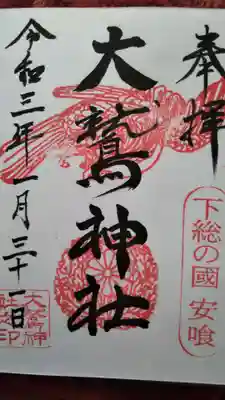 奉拝
下総の國 安喰
大鷲神社
令和三年一月三十一日